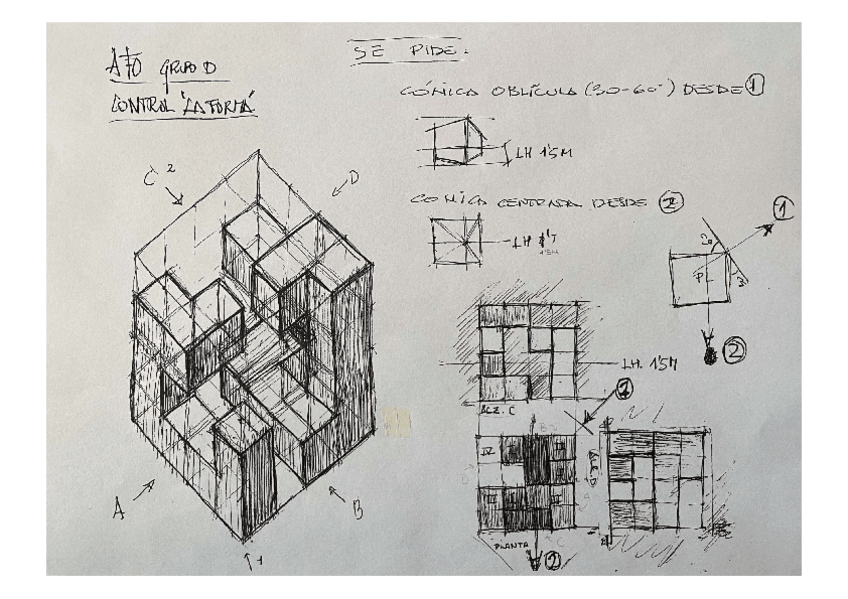 SE PIDE:
AFO GRUPO D
CONTROL "LA FORMA"
CÓNICA OBLÍCULA (30-60°) DESDE 1
LH 1'5M
C 2
D
CONICA CENTRADA DESDE 2
1
LH
1'5M
PL
2
LH. 1'5M
ALZ. C
1
IV
A
B
PLANTA
2
1